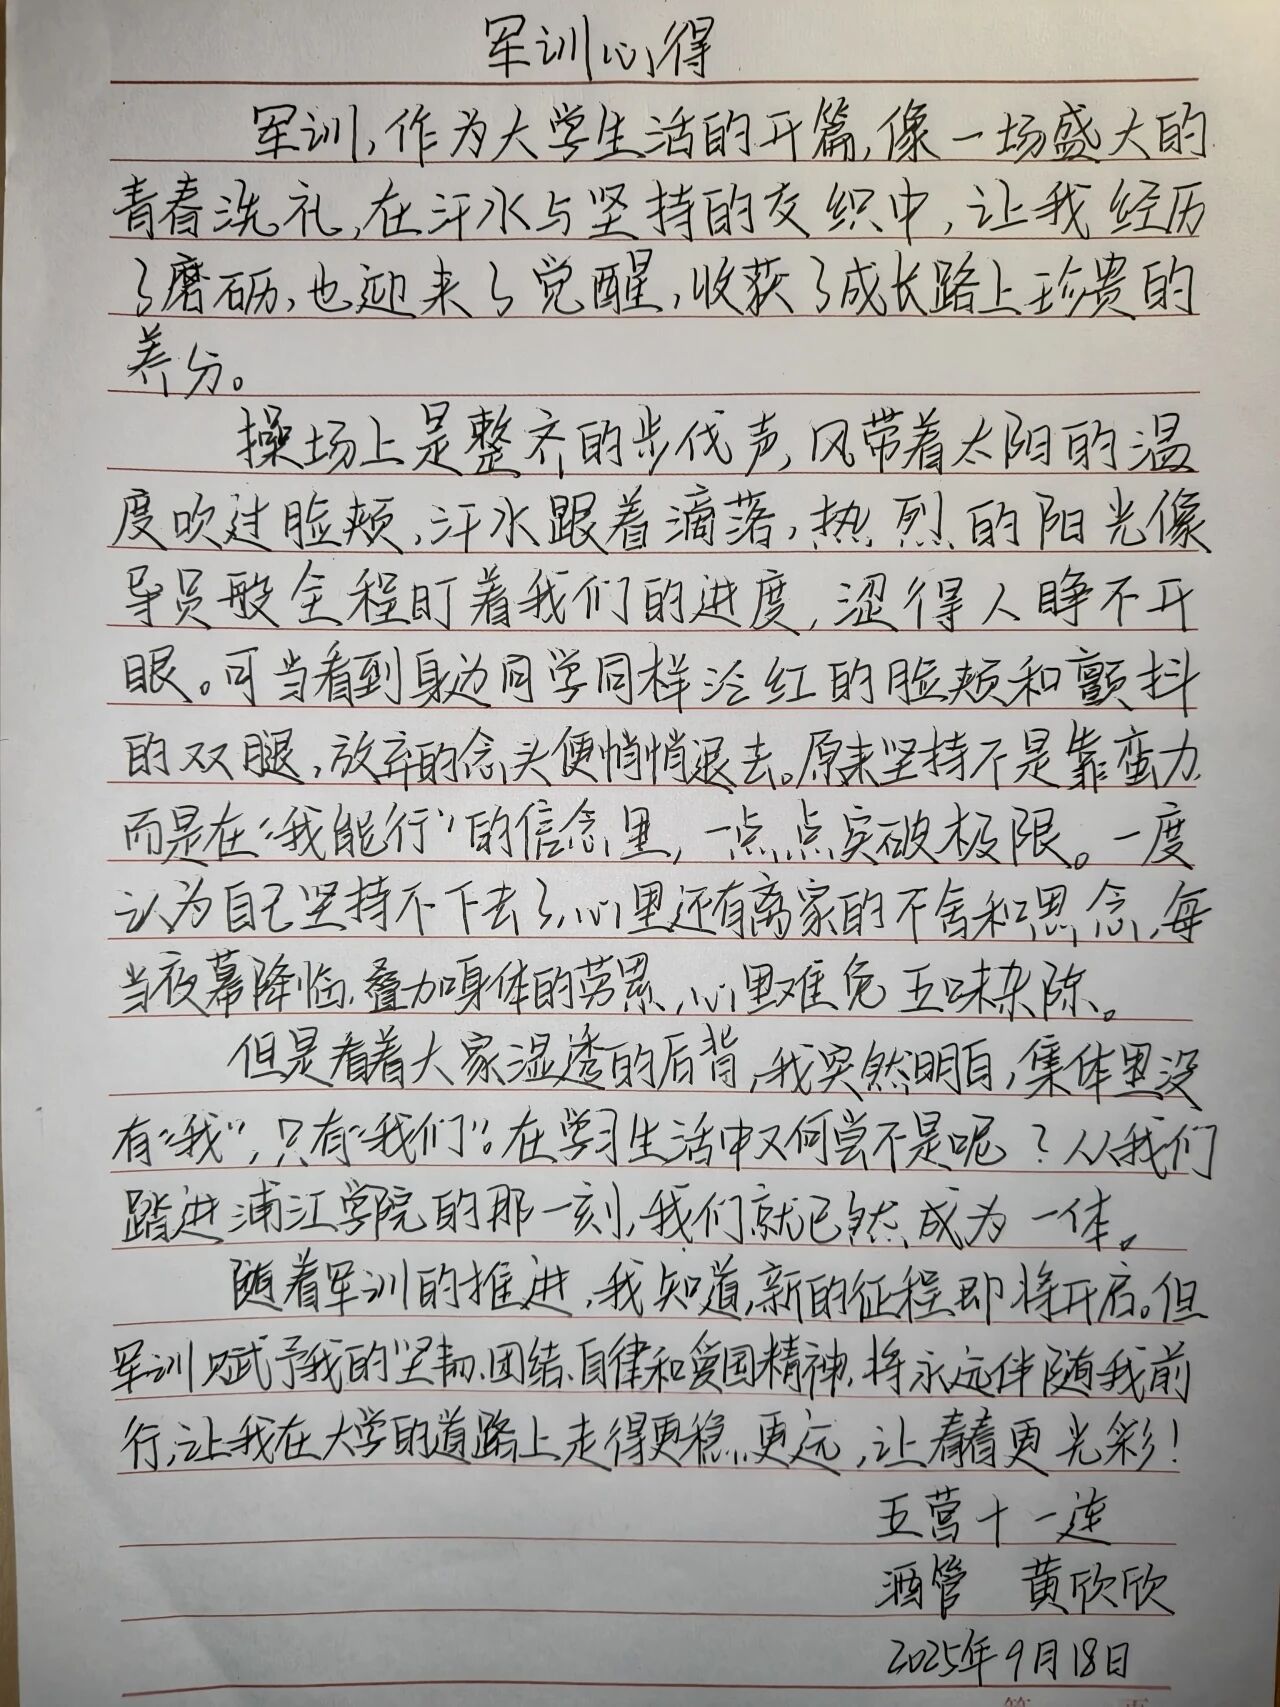 军训心得
军训,作为大学生活的开篇,像一场盛大的
青春洗礼,在汗水与坚持的交织中,让我经历
了磨砺,也迎来了觉醒,收获了成长路上珍贵的
养分。
操场上是整齐的步伐声,风带着太阳的温
度吹过脸颊,汗水跟着滴落,热烈的阳光像
导员般全程盯着我们的进度,涩得人睁不开
眼。可当看到身边同学同样泛红的脸颊和颤抖
的双腿,放弃的念头便悄悄退去。原来坚持不是靠蛮力,
而是在“我能行”的信念里,一点点突破极限。一度
认为自己坚持不下去了,心里还有离家的不舍和思念,每
当夜幕降临,叠加身体的劳累,心里难免五味杂陈。
但是看着大家湿透的后背,我突然明白,集体里没
有“我”,只有“我们”。在学习生活中又何尝不是呢?从我们
踏进浦江学院的那一刻,我们就已然成为一体。
随着军训的推进,我知道,新的征程即将开启。但
军训赋予我的坚韧、团结、自律和爱国精神,将永远伴随我前
行,让我在大学的道路上走得更稳更远,让青春更光彩!
五营十一连
酒管 黄欣欣
2025年9月18日